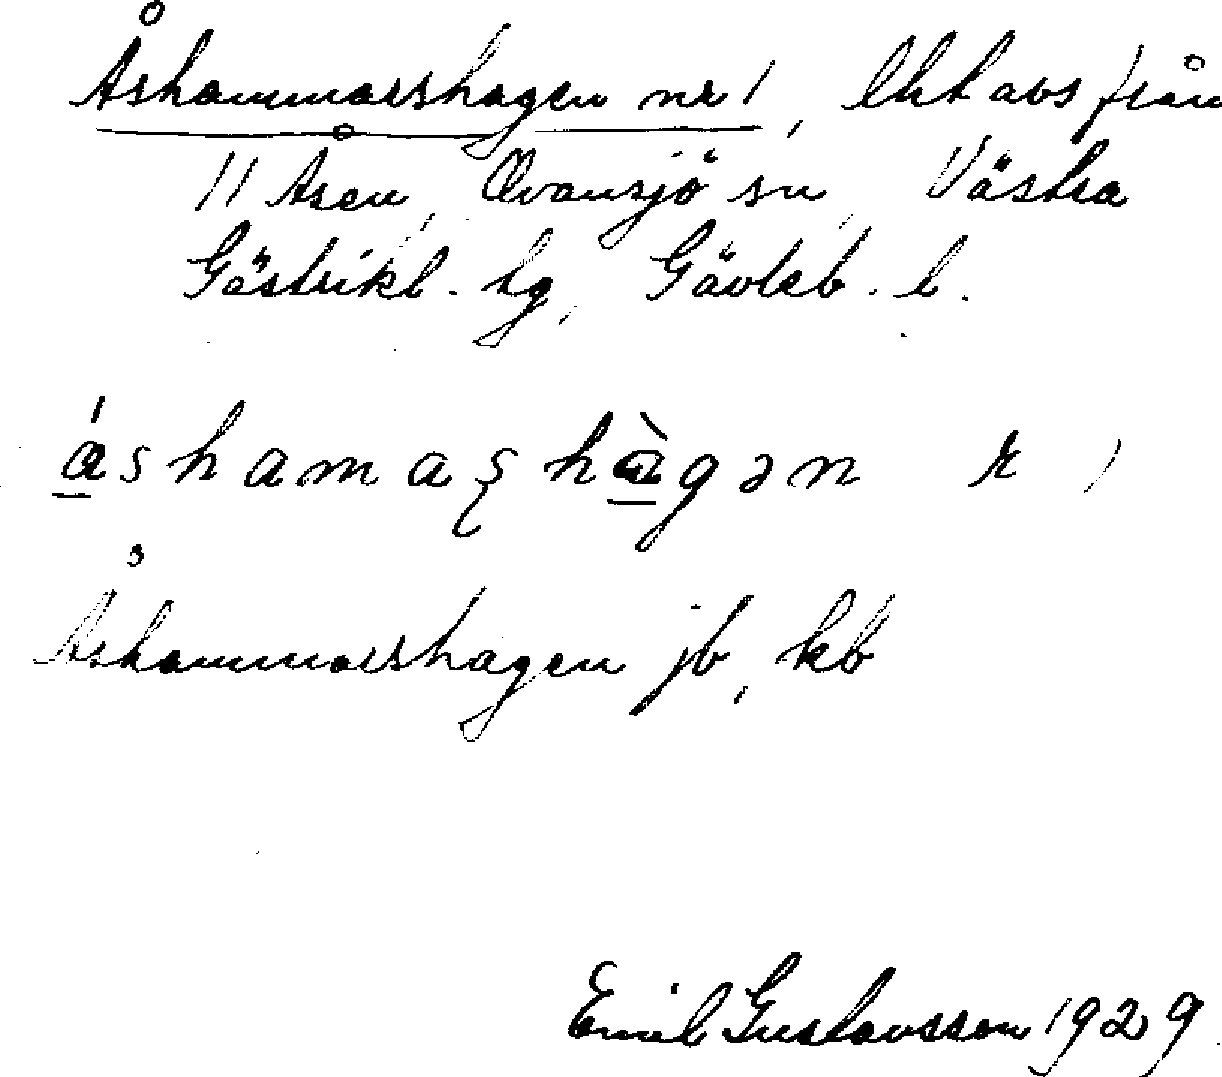 Åshammarshagen nr 1, lht avs från
11 Åsen, Ovansjö sn, Västra
Gästrikl. tg, Gävleb. l.
á̲shamaʂhà̲gən r )
Åshammarshagen jb, kb
Emil Gustavsson 1929